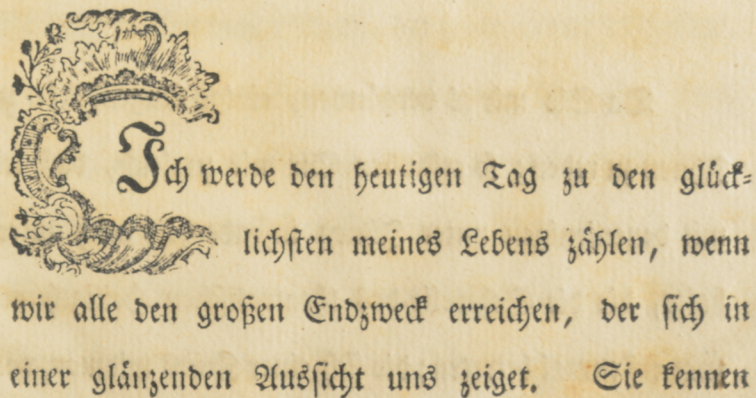 Ich werde den heutigen Tag zu den glück-
lichsten meines Lebens zählen, wenn
wir alle den großen Endzweck erreichen, der sich in
einer glänzenden Aussicht uns zeiget. Sie kennen